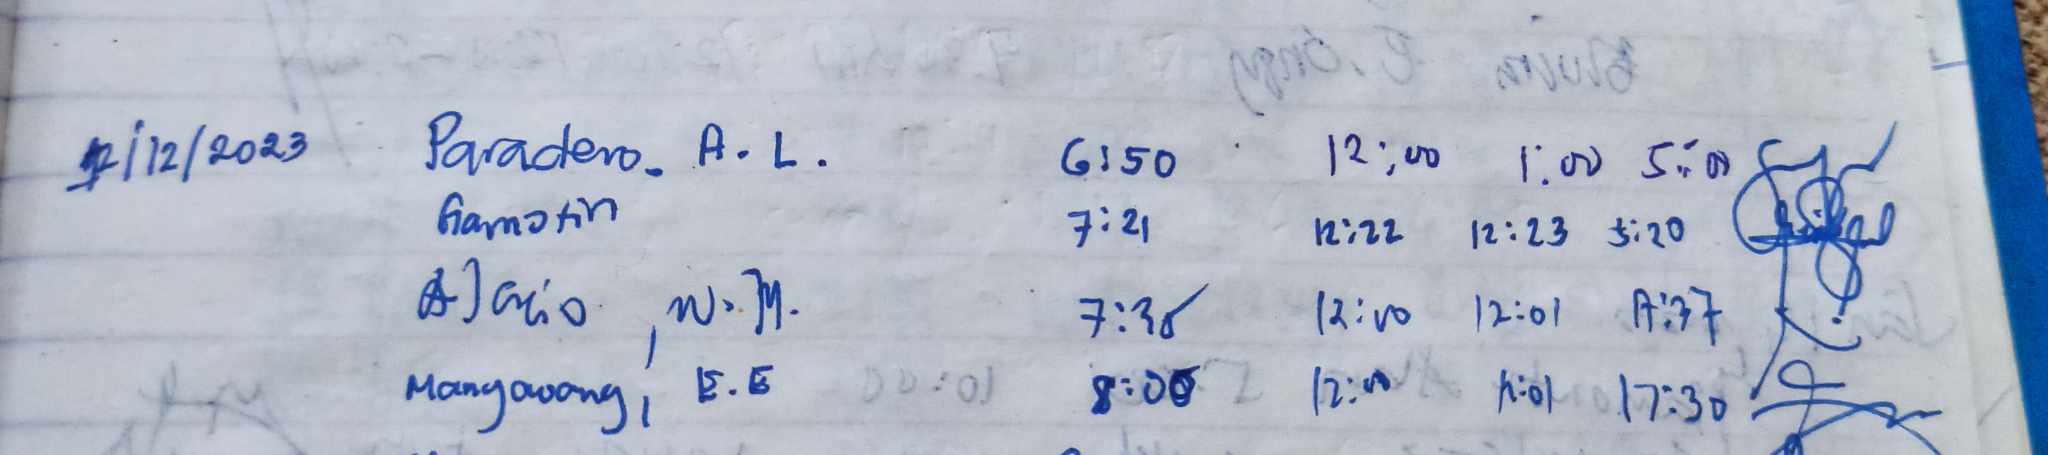 12/12/2023 Paradero. A. L. 6:50 12:00 1:00 5:00
Gamotin 7:21 12:22 12:23 5:20
N. M. 7:38 12:00 12:01 17:37
Mangawang, E. E 8:00 12:00 12:01 17:30